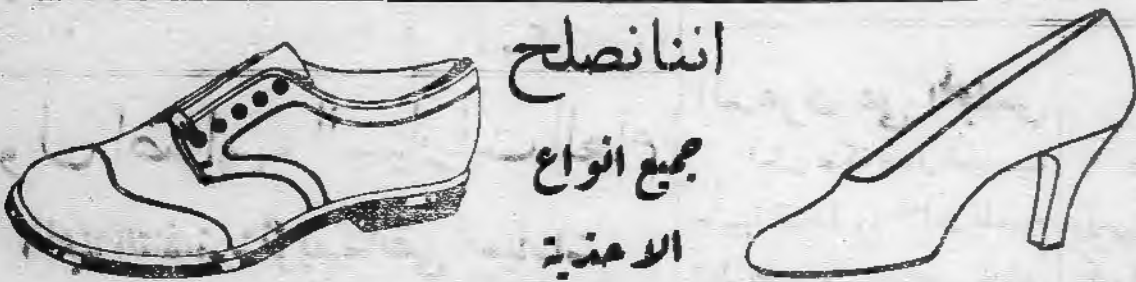 اننا نصلح
جميع انواع
الاحذية